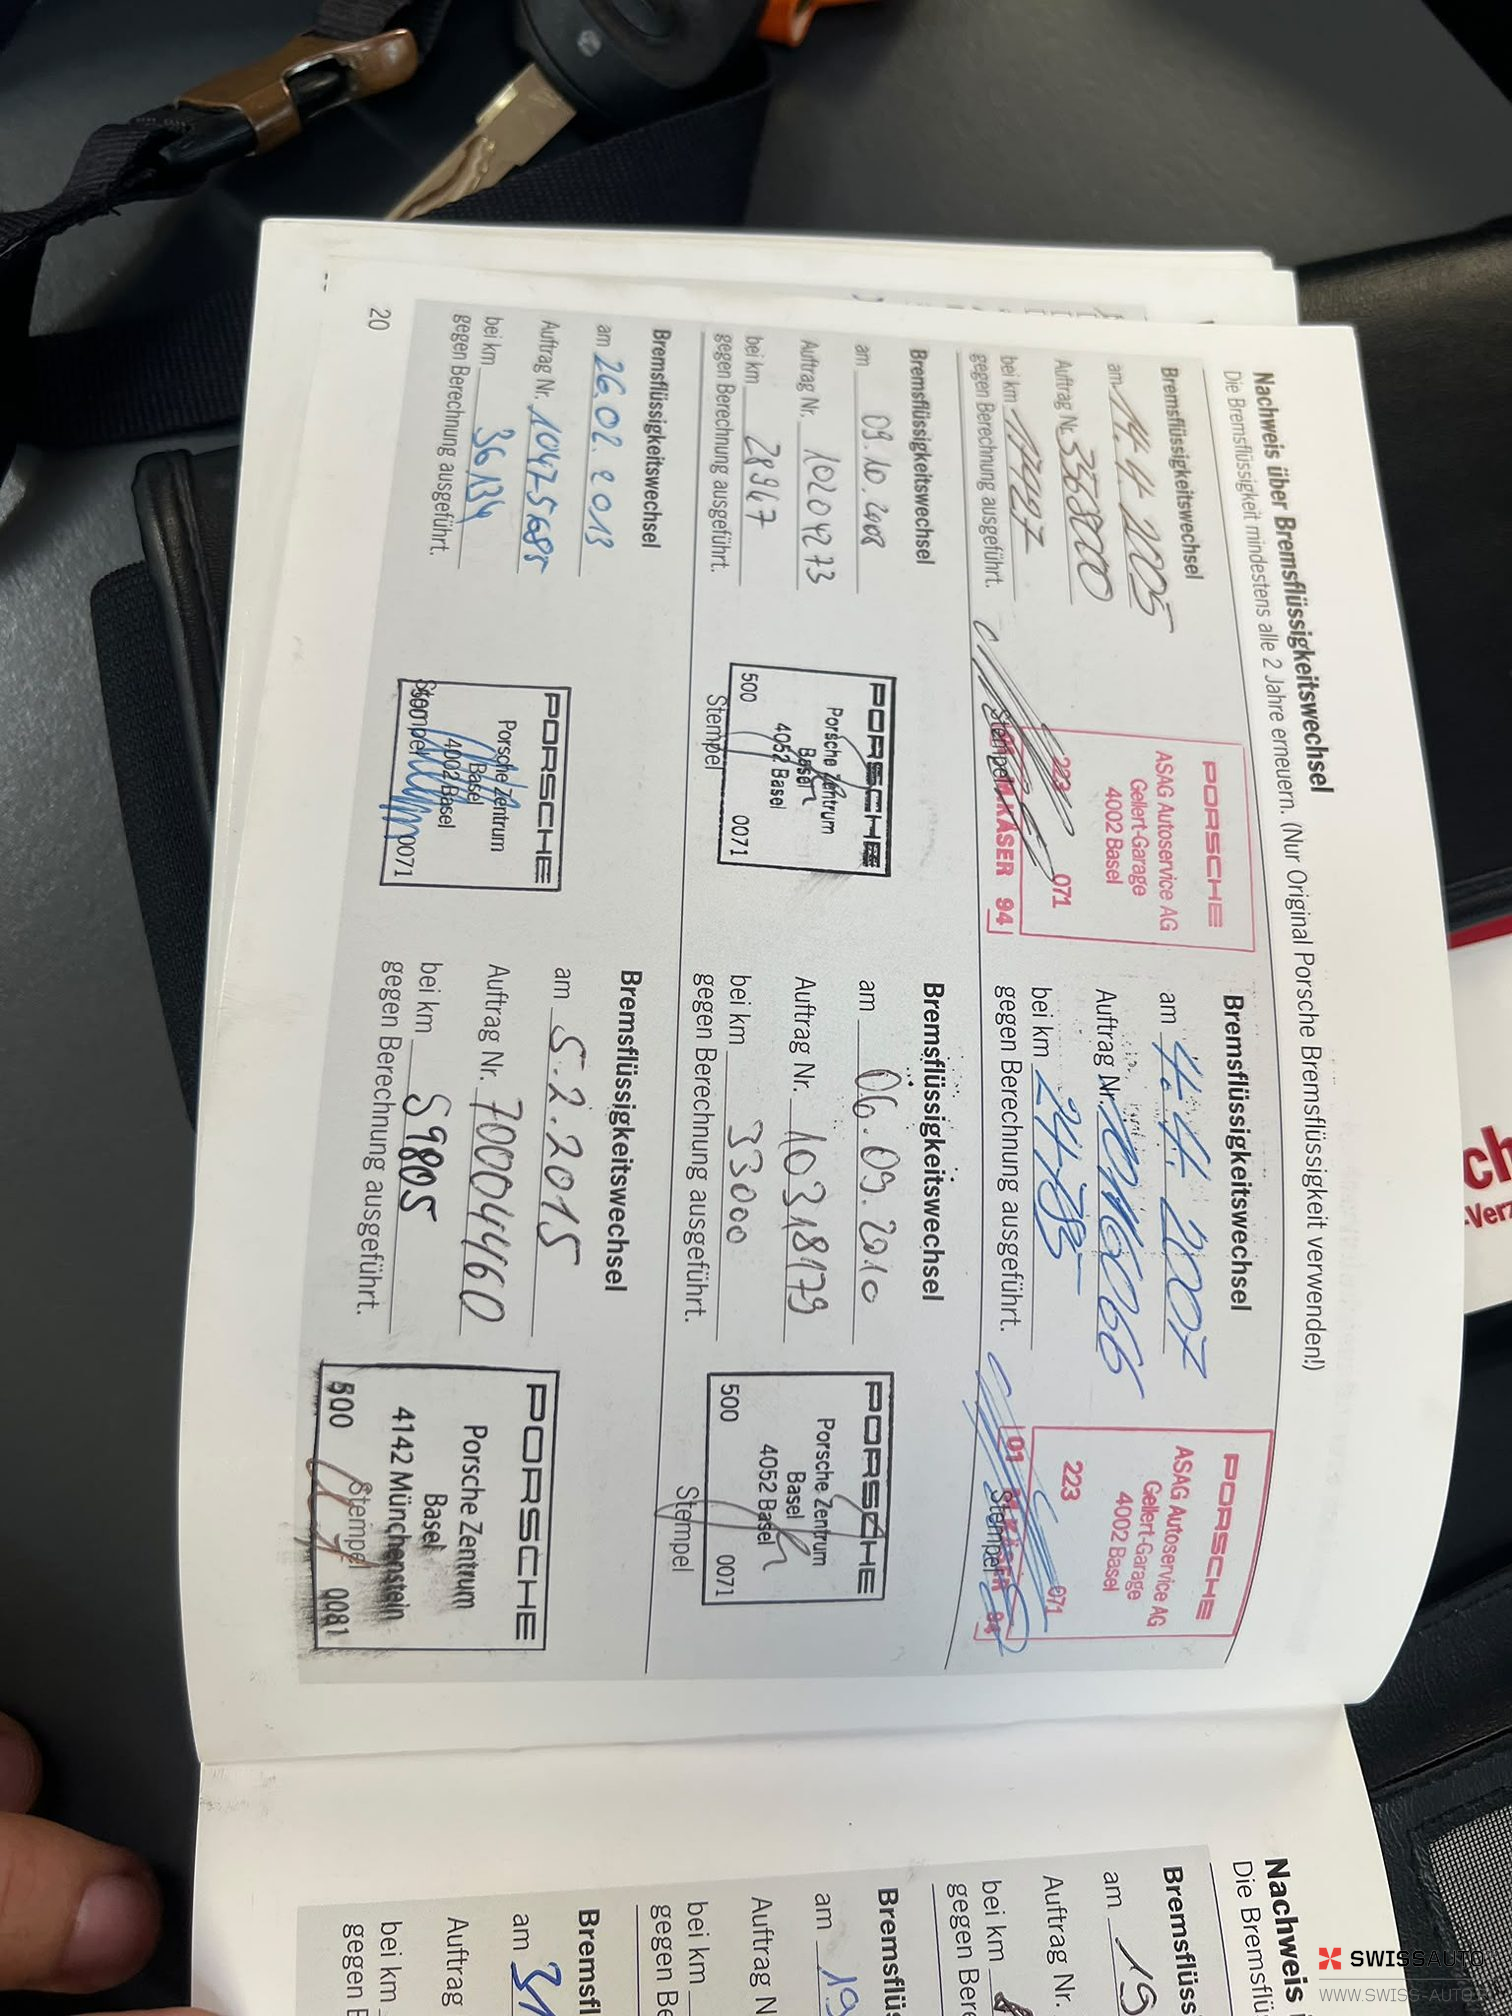 Nachweis über Bremsflüssigkeitswechsel
Die Bremsflüssigkeit mindestens alle 2 Jahre erneuern. (Nur Original Porsche Bremsflüssigkeit verwenden!)
Bremsflüssigkeitswechsel
am 14.4.2005
Auftrag Nr.
bei km
gegen Berechnung ausgeführt.
PORSCHE
ASAG Autoservice AG
Gellert-Garage
4002 Basel
223 071
Stempel
M.KÄSER 94
Bremsflüssigkeitswechsel
am 4.4.2007
Auftrag Nr.
bei km
gegen Berechnung ausgeführt.
PORSCHE
ASAG Autoservice AG
Gellert-Garage
4002 Basel
223 071
01 M.KÄSER 94
Stempel
Bremsflüssigkeitswechsel
am 09.10.2008
Auftrag Nr. 10204273
bei km 28967
gegen Berechnung ausgeführt.
PORSCHE
Porsche Zentrum
Basel
4052 Basel
500 0071
Stempel
Bremsflüssigkeitswechsel
am 06.09.2010
Auftrag Nr. 10318179
bei km 33000
gegen Berechnung ausgeführt.
PORSCHE
Porsche Zentrum
Basel
4052 Basel
500 0071
Stempel
Bremsflüssigkeitswechsel
am 26.02.2013
Auftrag Nr. 10475685
bei km 36134
gegen Berechnung ausgeführt.
PORSCHE
Porsche Zentrum
Basel
4002 Basel
0071
Stempel
Bremsflüssigkeitswechsel
am 5.2.2015
Auftrag Nr. 70004460
bei km 59805
gegen Berechnung ausgeführt.
PORSCHE
Porsche Zentrum
Basel
4142 Münchenstein
500 0081
Stempel
20
Nachweis
Die Bremsflü
Bremsflüss
am 19
Auftrag Nr.
bei km
gegen Bere
Bremsflü
am 19
Auftrag N
bei km
gegen Be
Bremsfl
am 31
Auftrag
bei km
gegen B
ch
-Verz
SWISSAUTO
WWW.SWISS-AUTO